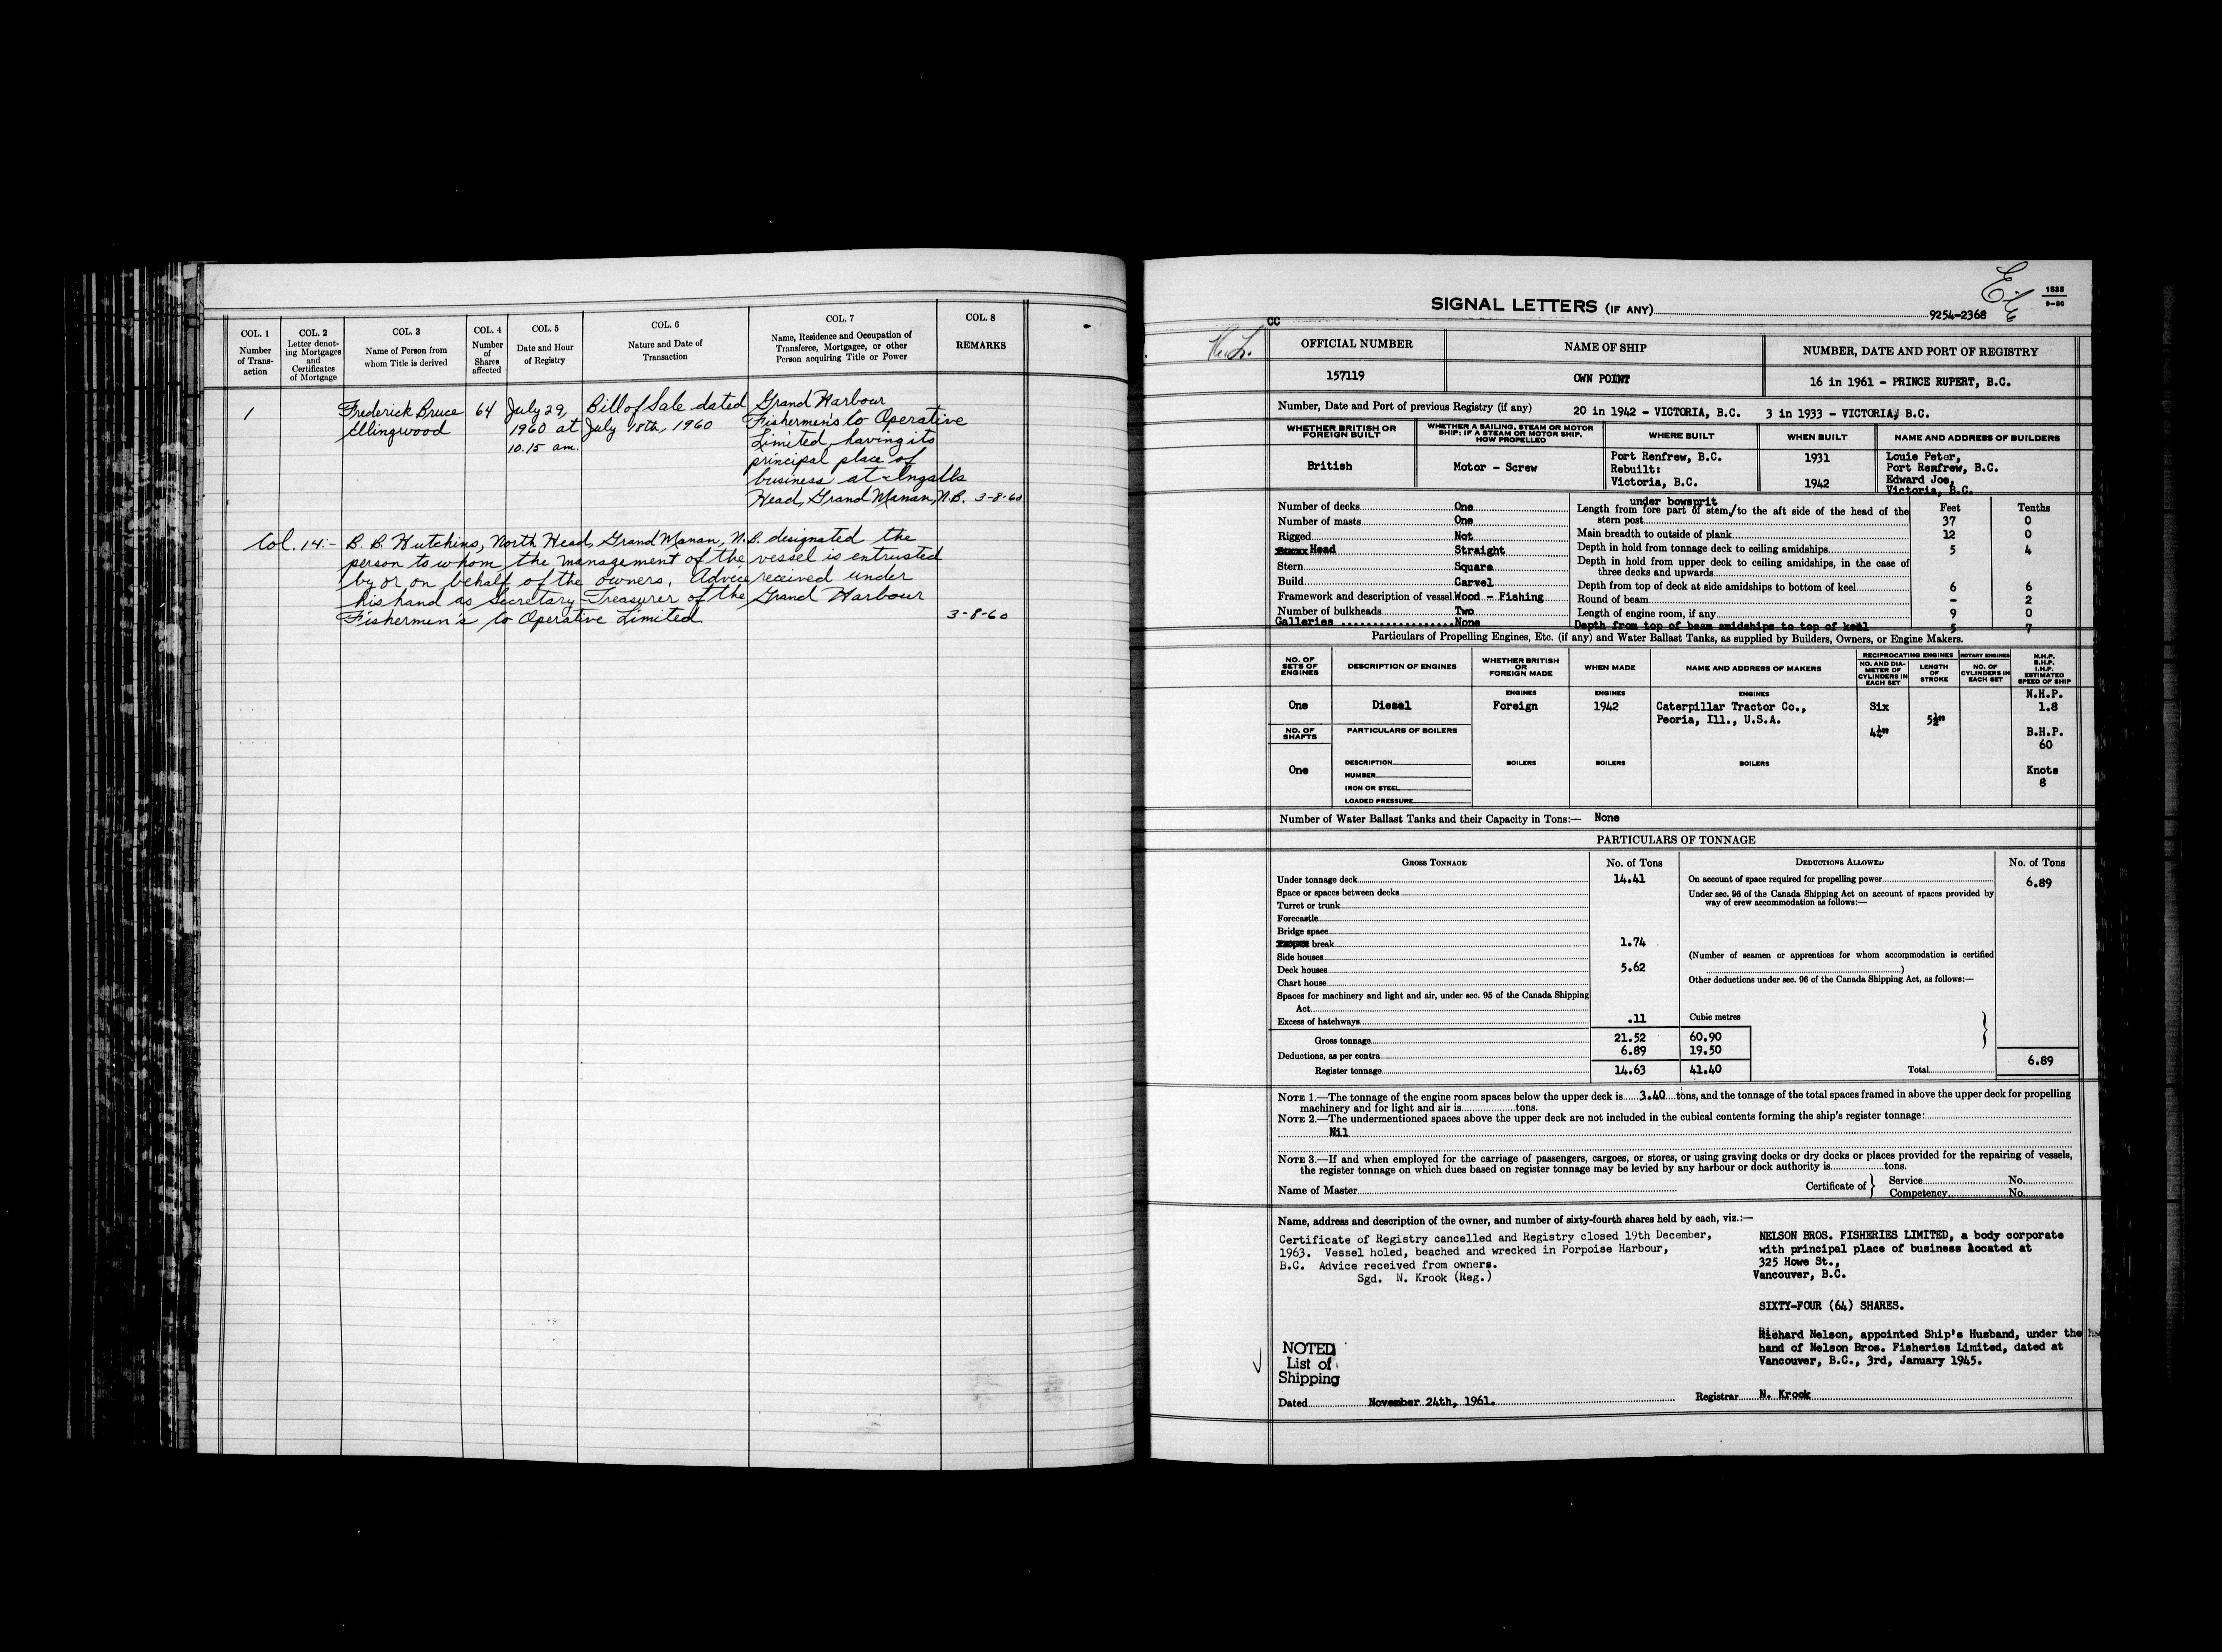 COL. 1
Number
of Trans-
action
COL. 2
Letter denot-
ing Mortgages
and
Certificates
of Mortgage
COL. 3
Name of Person from
whom Title is derived
COL. 4
Number
of
Shares
affected
COL. 5
Date and Hour
of Registry
COL. 6
Nature and Date of
Transaction
COL. 7
Name, Residence and Occupation of
Transferee, Mortgagee, or other
Person acquiring Title or Power
COL. 8
REMARKS
1
Frederick Bruce
Ellingwood
64
July 29,
1960 at
10.15 am.
Bill of Sale dated
July 18th, 1960
Grand Harbour
Fishermen's Co Operative
Limited, having its
principal place of
business at Ingalls
Head, Grand Manan, N.B. 3-8-60
Col. 14:- B. B. Hutchins, North Head, Grand Manan, N.B. designated the
person to whom the management of the vessel is entrusted
by or on behalf of the owners. Advice received under
his hand as Secretary-Treasurer of the Grand Harbour
Fishermen's Co Operative Limited 3-8-60
1535
9-60
SIGNAL LETTERS (IF ANY) 9254-2368
CC
OFFICIAL NUMBER
157119
NAME OF SHIP
OWN POINT
NUMBER, DATE AND PORT OF REGISTRY
16 in 1961 - PRINCE RUPERT, B.C.
Number, Date and Port of previous Registry (if any) 20 in 1942 - VICTORIA, B.C. 3 in 1933 - VICTORIA, B.C.
WHETHER BRITISH OR
FOREIGN BUILT
British
WHETHER A SAILING, STEAM OR MOTOR
SHIP; IF A STEAM OR MOTOR SHIP,
HOW PROPELLED
Motor - Screw
WHERE BUILT
Port Renfrew, B.C.
Rebuilt:
Victoria, B.C.
WHEN BUILT
1931
1942
NAME AND ADDRESS OF BUILDERS
Louie Peter,
Port Renfrew, B.C.
Edward Joe,
Victoria, B.C.
Number of decks One
Number of masts One
Rigged Not
Head Straight
Stern Square
Build Carvel
Framework and description of vessel Wood - Fishing
Number of bulkheads Two
Galleries None
Feet Tenths
under bowsprit
Length from fore part of stem,/to the aft side of the head of the
stern post 37 0
Main breadth to outside of plank 12 0
Depth in hold from tonnage deck to ceiling amidships 5 4
Depth in hold from upper deck to ceiling amidships, in the case of
three decks and upwards
Depth from top of deck at side amidships to bottom of keel 6 6
Round of beam - 2
Length of engine room, if any 9 0
Depth from top of beam amidships to top of keel 5 7
Particulars of Propelling Engines, Etc. (if any) and Water Ballast Tanks, as supplied by Builders, Owners, or Engine Makers.
NO. OF
SETS OF
ENGINES
DESCRIPTION OF ENGINES
WHETHER BRITISH
OR
FOREIGN MADE
WHEN MADE
NAME AND ADDRESS OF MAKERS
RECIPROCATING ENGINES
NO. AND DIA-
METER OF
CYLINDERS IN
EACH SET
LENGTH
OF
STROKE
ROTARY ENGINES
NO. OF
CYLINDERS IN
EACH SET
N.H.P.
B.H.P.
I.H.P.
ESTIMATED
SPEED OF SHIP
ENGINES ENGINES ENGINES N.H.P.
One Diesel Foreign 1942 Caterpillar Tractor Co., Six 1.8
Peoria, Ill., U.S.A. 5½"
NO. OF
SHAFTS
PARTICULARS OF BOILERS 4¼" B.H.P.
60
One
DESCRIPTION BOILERS BOILERS BOILERS Knots
NUMBER 8
IRON OR STEEL
LOADED PRESSURE
Number of Water Ballast Tanks and their Capacity in Tons:— None
PARTICULARS OF TONNAGE
GROSS TONNAGE No. of Tons
Under tonnage deck 14.41
Space or spaces between decks
Turret or trunk
Forecastle
Bridge space
break 1.74
Side houses
Deck houses 5.62
Chart house
Spaces for machinery and light and air, under sec. 95 of the Canada Shipping
Act
Excess of hatchways .11 Cubic metres
Gross tonnage 21.52 60.90
Deductions, as per contra 6.89 19.50
Register tonnage 14.63 41.40
DEDUCTIONS ALLOWED No. of Tons
On account of space required for propelling power 6.89
Under sec. 96 of the Canada Shipping Act on account of spaces provided by
way of crew accommodation as follows:—
(Number of seamen or apprentices for whom accommodation is certified
)
Other deductions under sec. 96 of the Canada Shipping Act, as follows:—
Total 6.89
NOTE 1.—The tonnage of the engine room spaces below the upper deck is 3.40 tons, and the tonnage of the total spaces framed in above the upper deck for propelling
machinery and for light and air is tons.
NOTE 2.—The undermentioned spaces above the upper deck are not included in the cubical contents forming the ship's register tonnage:
Nil
NOTE 3.—If and when employed for the carriage of passengers, cargoes, or stores, or using graving docks or dry docks or places provided for the repairing of vessels,
the register tonnage on which dues based on register tonnage may be levied by any harbour or dock authority is tons.
Name of Master Certificate of } Service No.
Competency No.
Name, address and description of the owner, and number of sixty-fourth shares held by each, viz.:—
Certificate of Registry cancelled and Registry closed 19th December,
1963. Vessel holed, beached and wrecked in Porpoise Harbour,
B.C. Advice received from owners.
Sgd. N. Krook (Reg.)
NELSON BROS. FISHERIES LIMITED, a body corporate
with principal place of business located at
325 Howe St.,
Vancouver, B.C.
SIXTY-FOUR (64) SHARES.
Richard Nelson, appointed Ship's Husband, under the
hand of Nelson Bros. Fisheries Limited, dated at
Vancouver, B.C., 3rd, January 1945.
NOTED
List of
Shipping
Dated November 24th, 1961. Registrar N. Krook